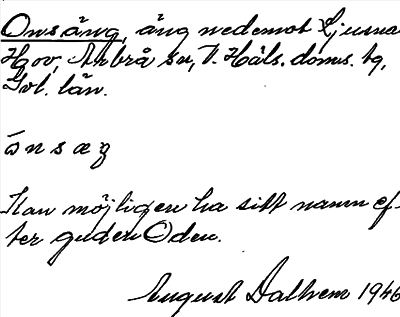 Onsäng, äng nedemot Ljusna
Hov, Arbrå sn, V. Häls. doms. tg,
Gvl. län.
ònsæŋ
Kan möjligen ha sitt namn ef-
ter guden Oden.
August Dalhem 1946